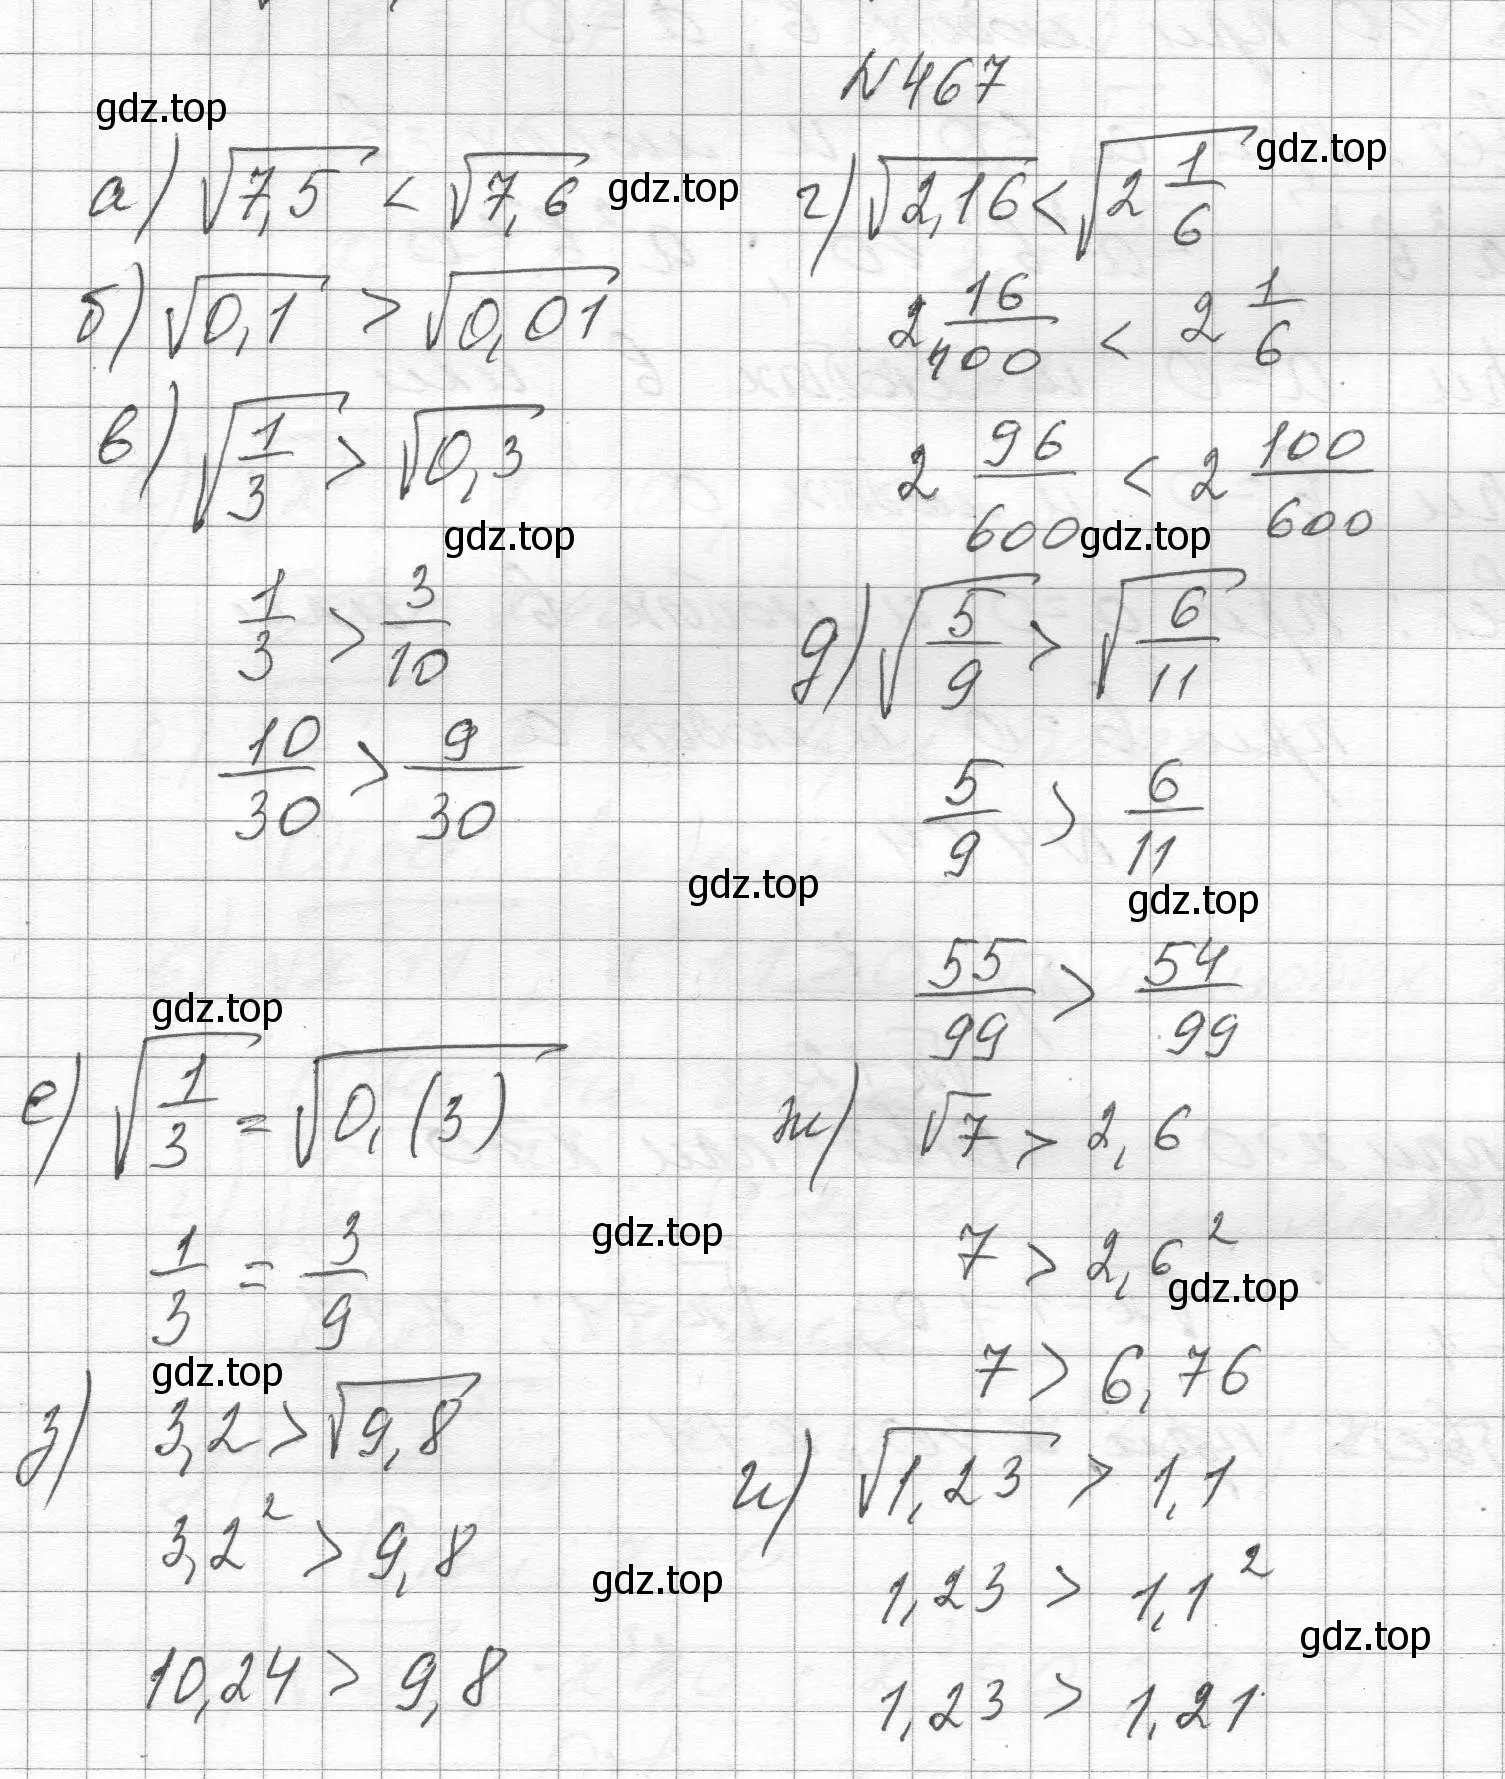 N 467
gdz.top
а) √7,5 < √7,6 gdz.top
б) √0,1 > √0,01
в) √(1/3) > √0,3
gdz.top
1/3 > 3/10
10/30 > 9/30
г) √2,16 < √(2 1/6) gdz.top
2 16/100 < 2 1/6
2 96/600 < 2 100/600
gdz.top
д) √(5/9) > √(6/11)
5/9 > 6/11
gdz.top
gdz.top
55/99 > 54/99
gdz.top
е) √(1/3) = √0,(3)
1/3 = 3/9
gdz.top
ж) √7 > 2,6
7 > 2,6²
gdz.top
7 > 6,76
gdz.top
з) 3,2 > √9,8
3,2² > 9,8
10,24 > 9,8
и) √1,23 > 1,1
gdz.top
1,23 > 1,1²
gdz.top
1,23 > 1,21